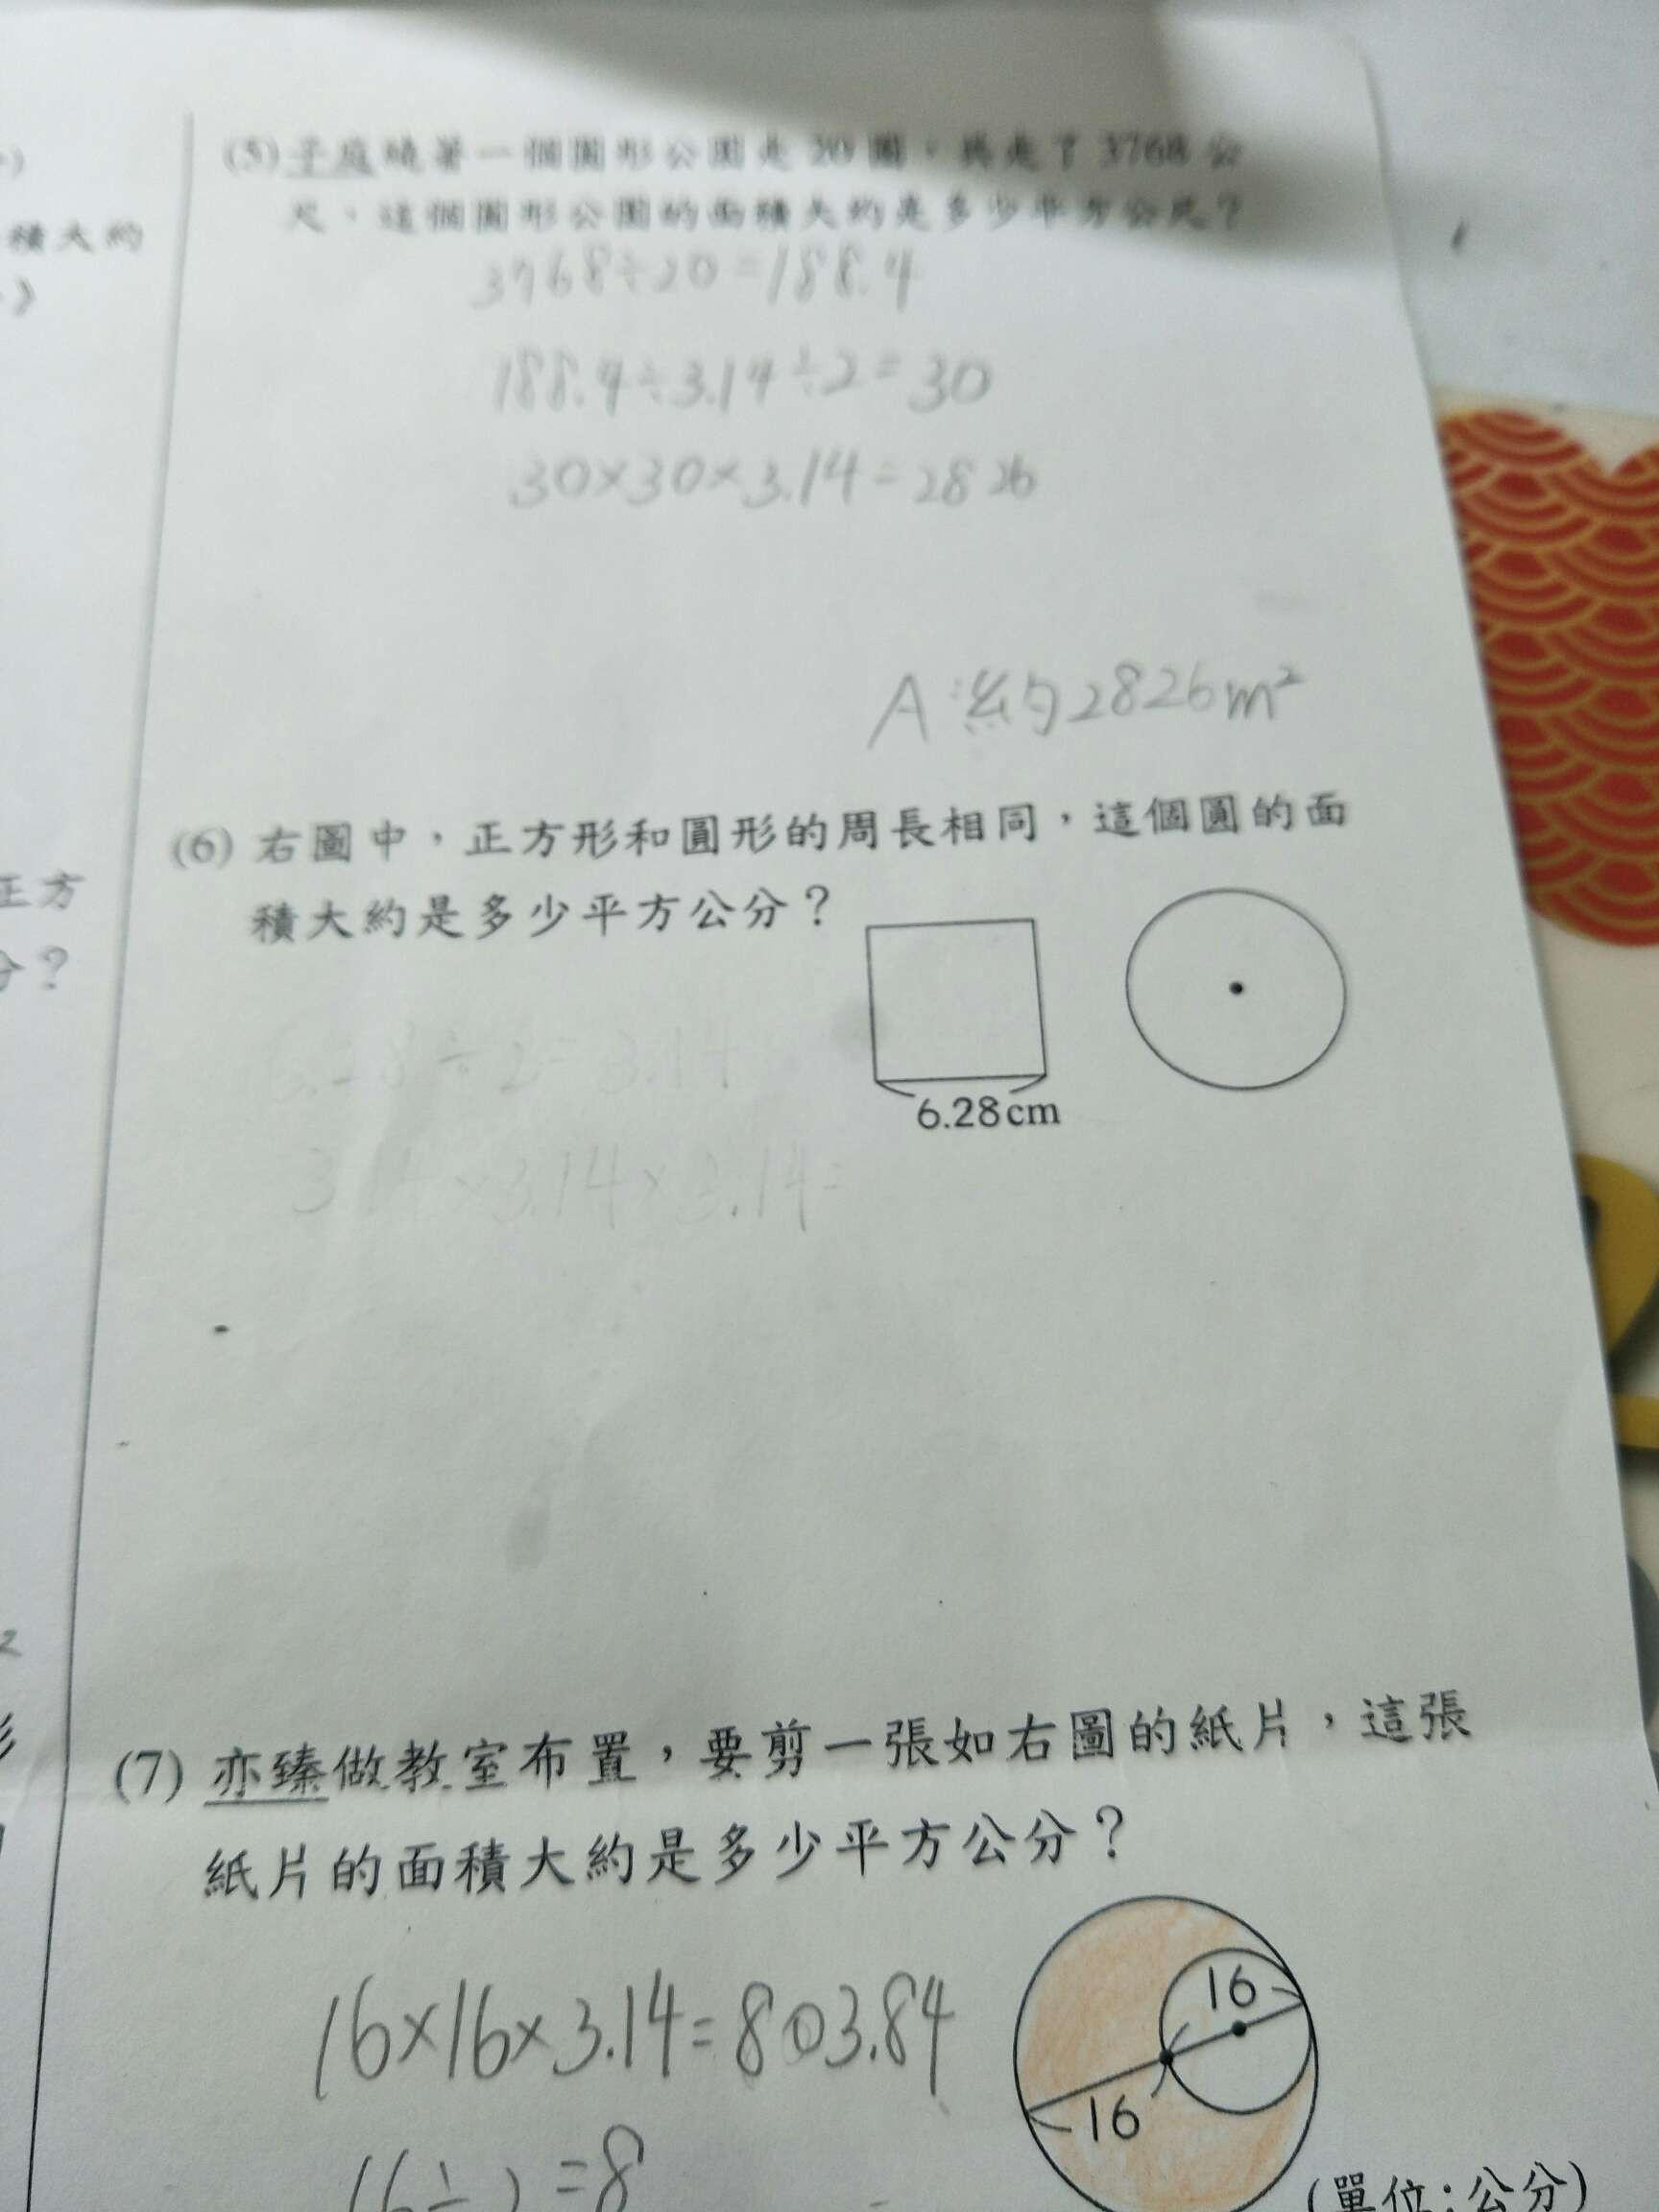 積大約
(5) 子庭繞著一個圓形公園走 20 圈，共走了 3768 公
尺，這個圓形公園的面積大約是多少平方公尺？
3768÷20=188.4
188.4÷3.14÷2=30
30×30×3.14=2826
A:約2826m²
正方
分？
(6) 右圖中，正方形和圓形的周長相同，這個圓的面
積大約是多少平方公分？
6.28÷2=3.14
3.14×3.14×3.14=
6.28cm
2
(7) 亦臻做教室布置，要剪一張如右圖的紙片，這張
紙片的面積大約是多少平方公分？
16×16×3.14=803.84
16÷2=8
16
16
(單位:公分)